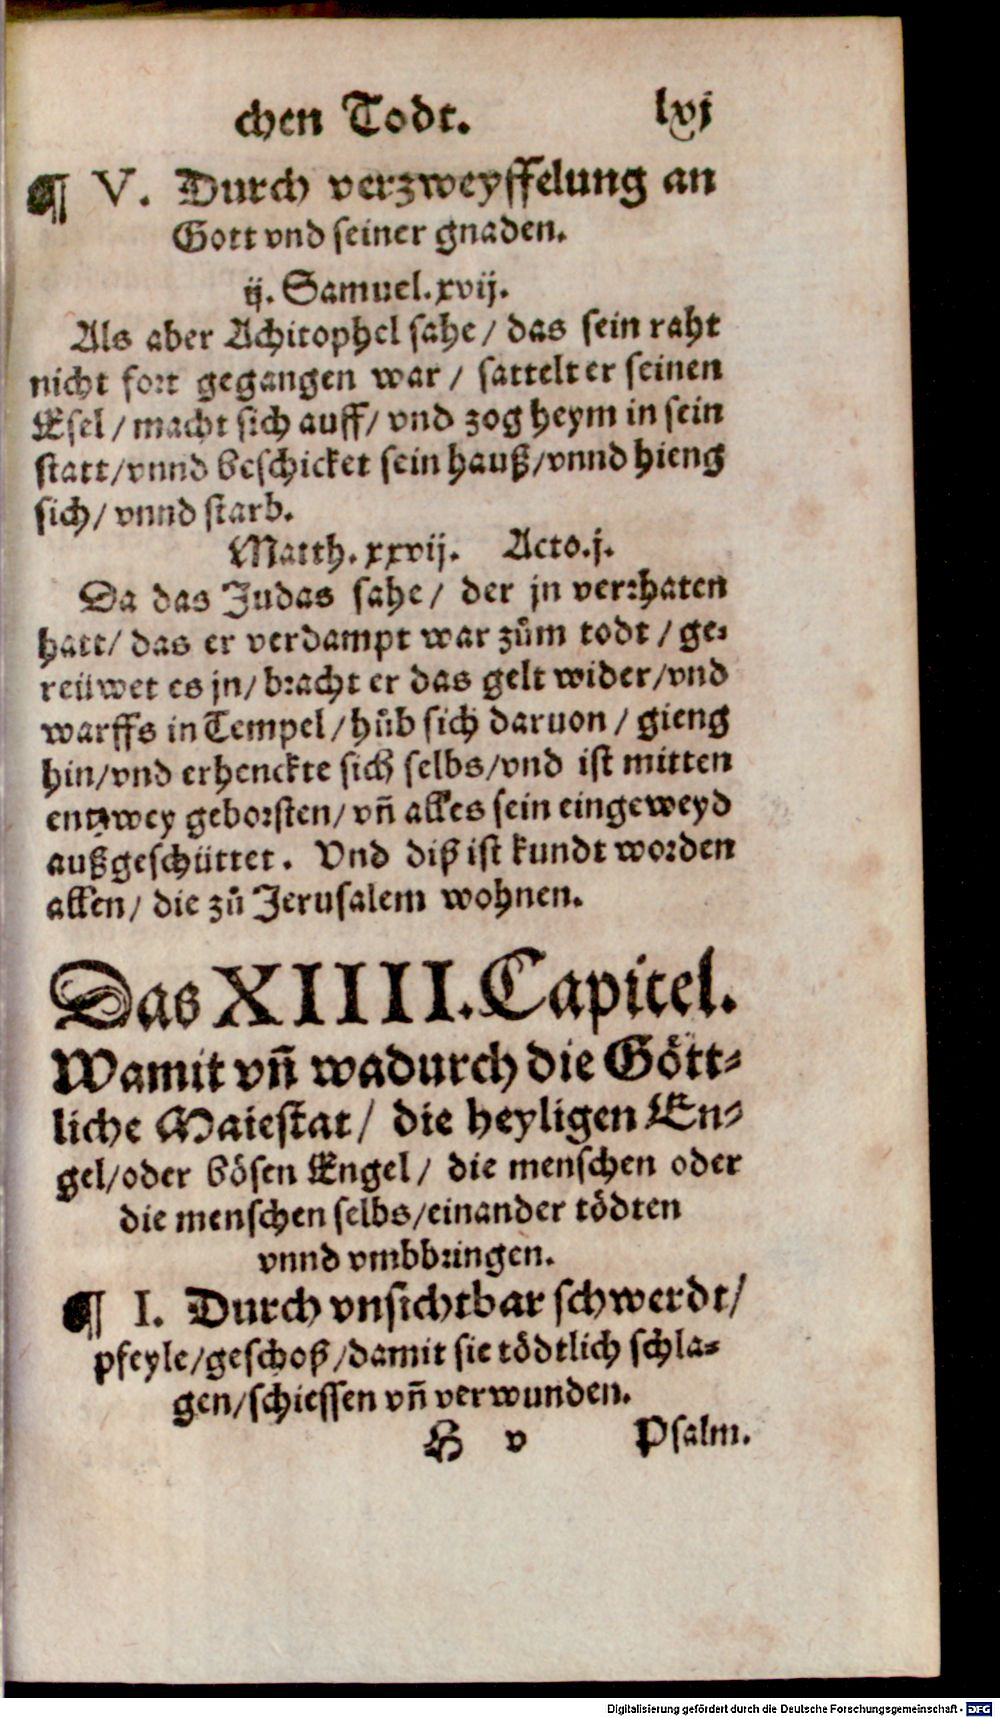 chen Todt. lvj
¶ V. Durch verzweyffelung an
Gott vnd seiner gnaden.
ij. Samuel. xvij.
Als aber Achitophel sahe / das sein raht
nicht fort gegangen war / sattelt er seinen
Esel / macht sich auff / vnd zog heym in sein
statt / vnnd beschicket sein hauß / vnnd hieng
sich / vnnd starb.
Matth. xxvij. Acto. j.
Da das Judas sahe / der jn verrhaten
hatt / das er verdampt war zům todt / ge⸗
reüwet es jn / bracht er das gelt wider / vnd
warffs in Tempel / hůb sich daruon / gieng
hin / vnd erhenckte sich selbs / vnd ist mitten
entzwey geborsten / vñ alles sein eingeweyd
außgeschüttet. Vnd diß ist kundt worden
allen / die zů Jerusalem wohnen.
Das XIIII. Capitel.
Wamit vñ wadurch die Gött⸗
liche Maiestat / die heyligen En⸗
gel / oder bösen Engel / die menschen oder
die menschen selbs / einander tödten
vnnd vmbbringen.
¶ I. Durch vnsichtbar schwerdt /
pfeyle / geschoß / damit sie tödtlich schla⸗
gen / schiessen vñ verwunden.
H v Psalm.
Digitalisierung gefördert durch die Deutsche Forschungsgemeinschaft - DFG